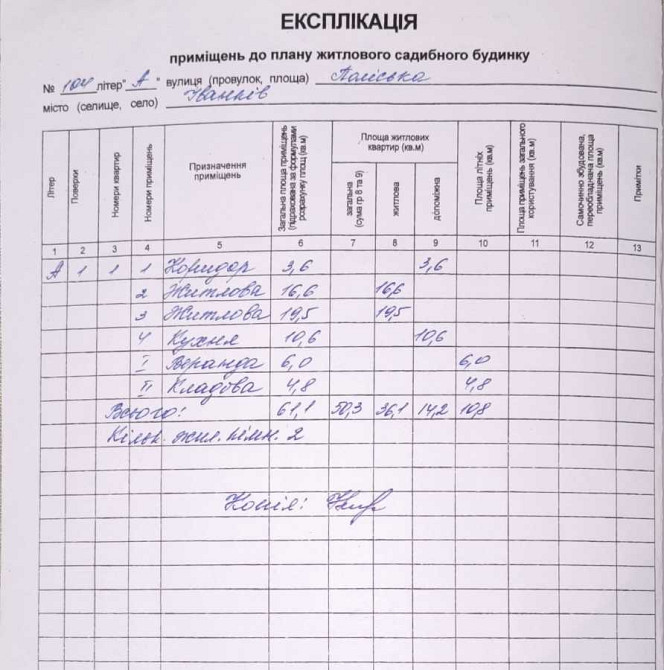 ЕКСПЛІКАЦІЯ
приміщень до плану житлового садибного будинку
№ 104 літер" А " вулиця (провулок, площа) Поліська
місто (селище, село) Іванків
Літер Поверхи Номери квартир Номери приміщень Призначення приміщень Загальна площа приміщень (підрахована за формулами розрахунку площ (кв.м) Площа житлових квартир (кв.м) загальна (сума гр 8 та 9) житлова допоміжна Площа літніх приміщень (кв.м) Площа приміщень загального користування (кв.м) Самочинно збудована, переобладнана площа приміщень (кв.м) Примітки
1 2 3 4 5 6 7 8 9 10 11 12 13
А 1 1 1 Коридор 3,6 3,6
2 Житлова 16,6 16,6
3 Житлова 19,5 19,5
4 Кухня 10,6 10,6
I Веранда 6,0 6,0
II Кладова 4,8 4,8
Всього: 61,1 50,3 36,1 14,2 10,8
Кільк. жил. кімн. 2
Копія: